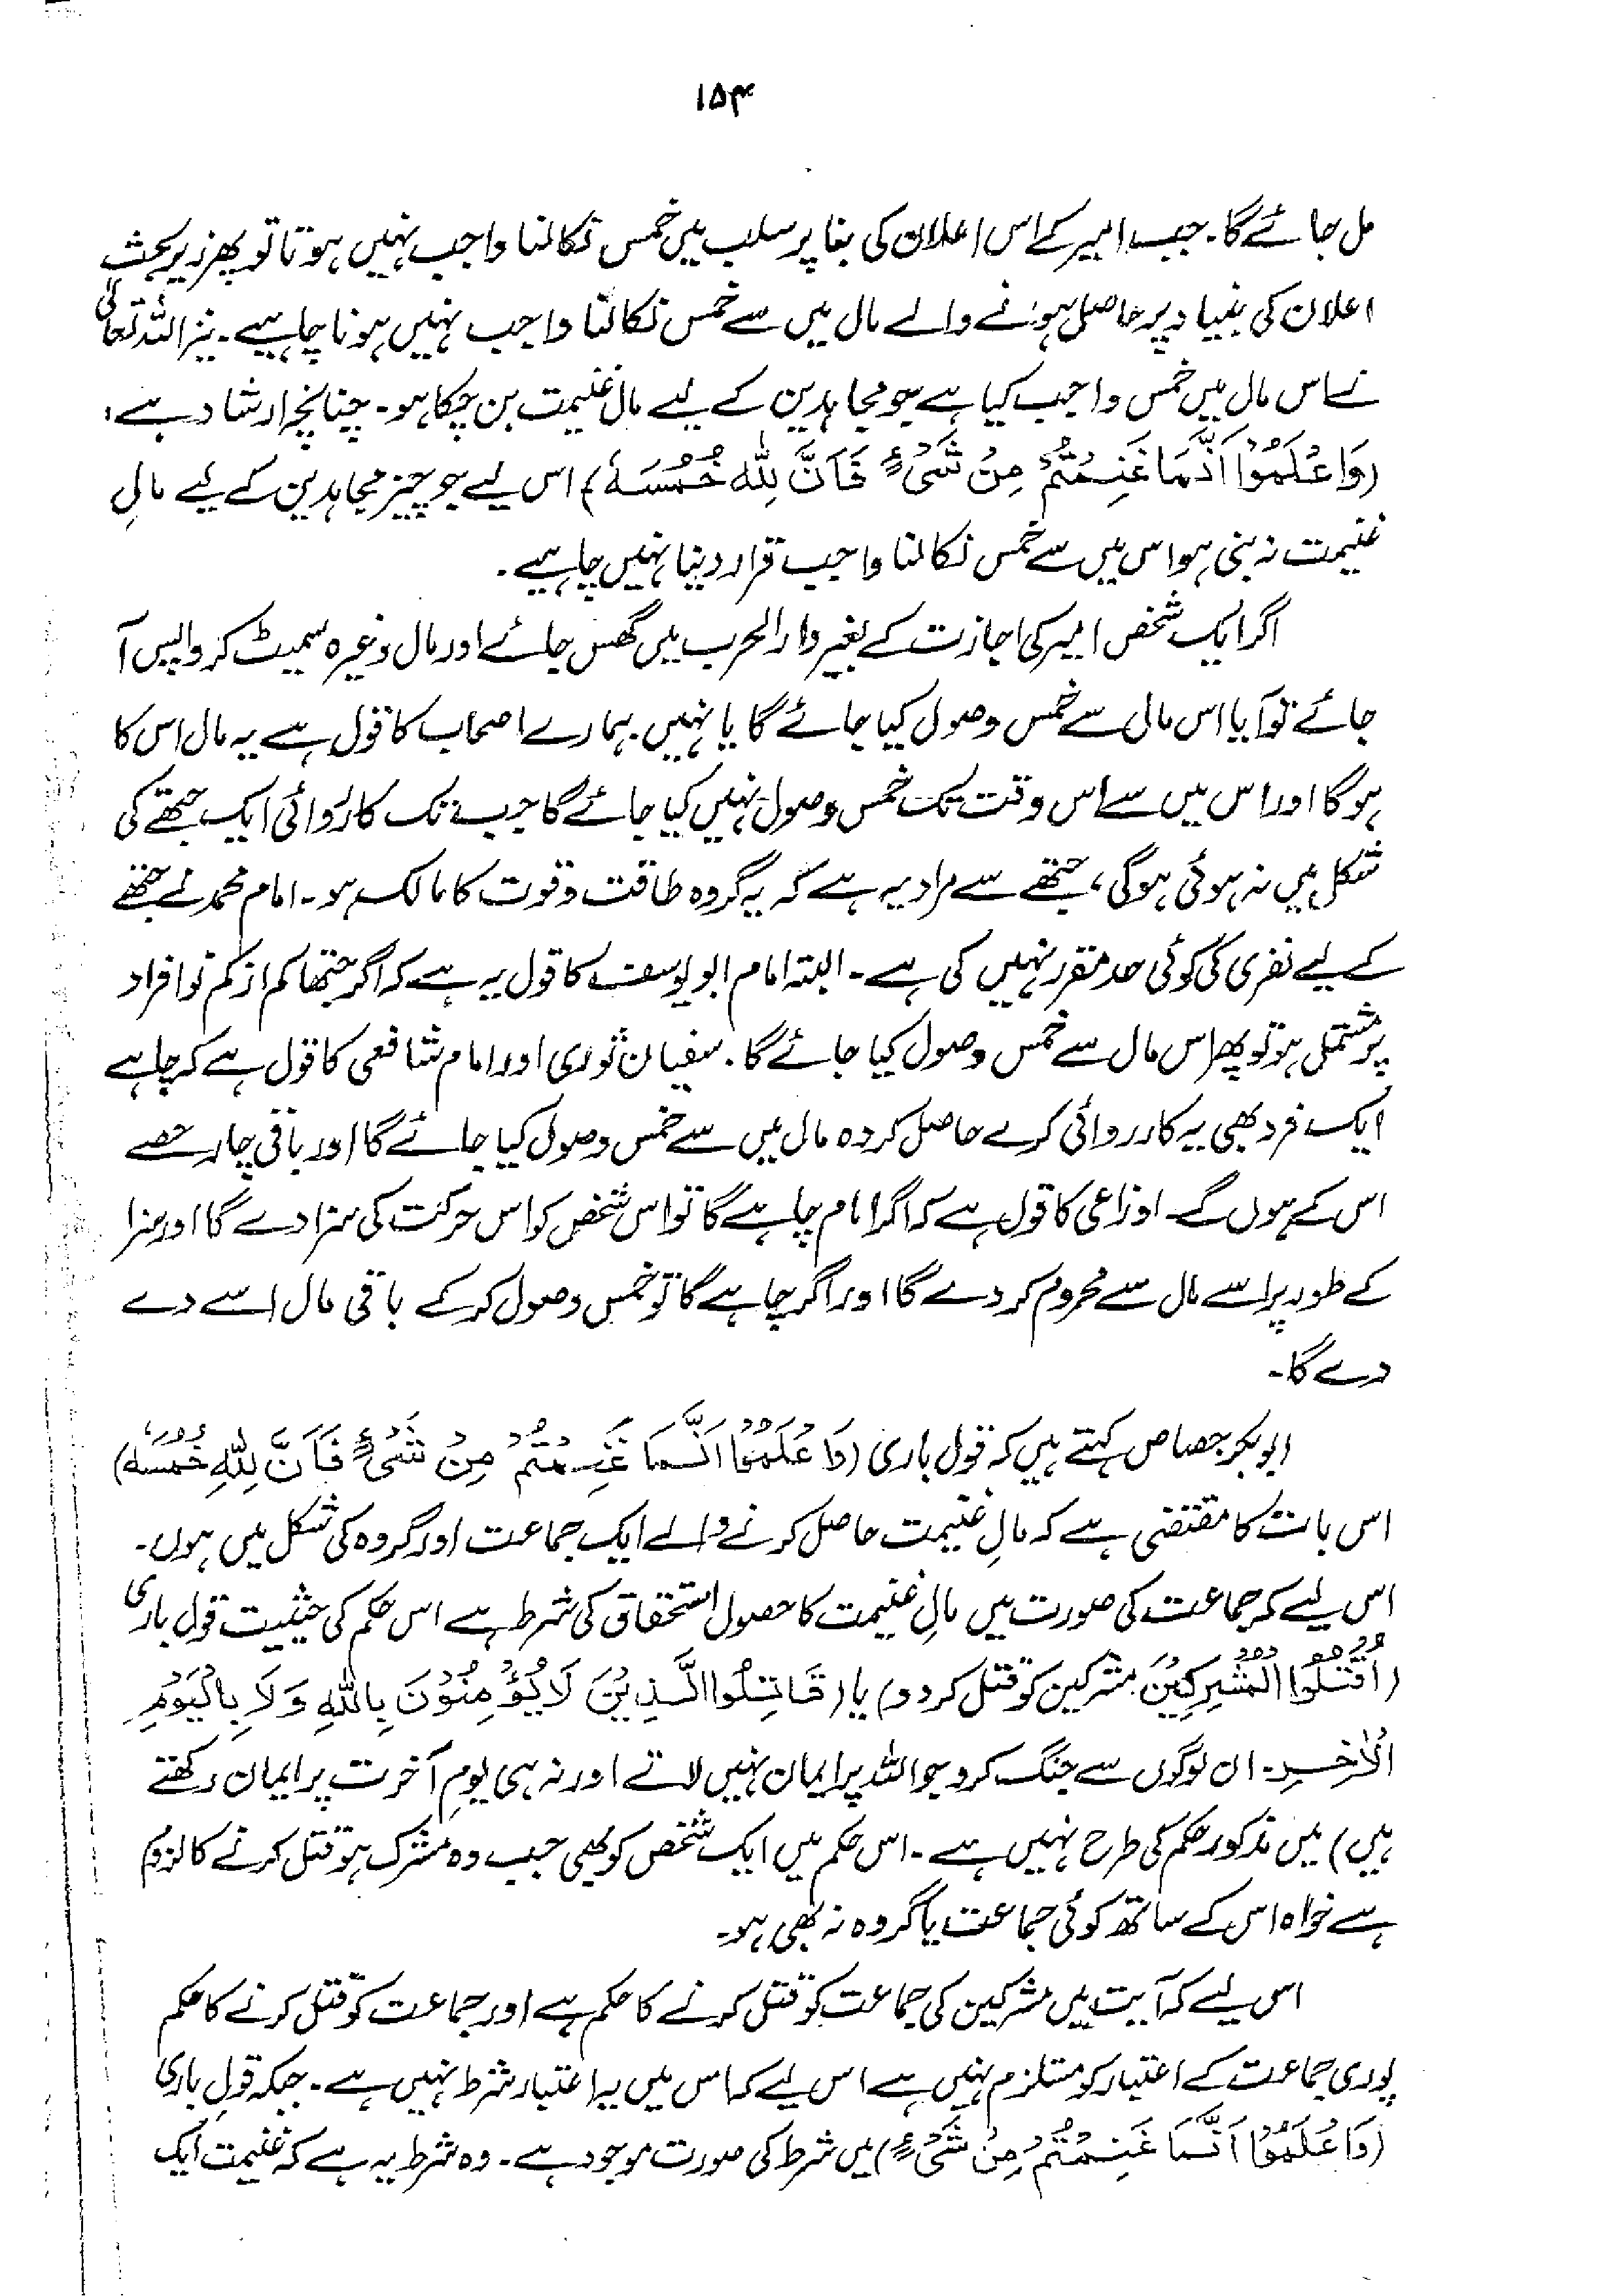 ۱۵۴
مل جائے گا۔ جب امیر کے اس اعلان کی بنا پر سلب میں خمس نکالنا واجب نہیں ہوتا تو پھر زیر بحث
اعلان کی بنیاد پر حاصل ہونے والے مال میں سے خمس نکالنا واجب نہیں ہونا چاہیے۔ نیز اللہ تعالیٰ
نے اس مال میں خمس واجب کیا ہے جو مجاہدین کے لیے مال غنیمت بن چکا ہو۔ چنانچہ ارشاد ہے،
(وَاعْلَمُوْا اَنَّمَا غَنِمْتُمْ مِنْ شَیْءٍ فَاَنَّ لِلّٰہِ خُمُسَہٗ) اس لیے جو چیز مجاہدین کے لیے مالِ
غنیمت نہ بنی ہو اس میں سے خمس نکالنا واجب قرار دینا نہیں چاہیے۔
اگر ایک شخص امیر کی اجازت کے بغیر دارالحرب میں گھس جائے اور مال وغیرہ سمیٹ کر واپس آ
جائے تو آیا اس مال سے خمس وصول کیا جائے گا یا نہیں۔ ہمارے اصحاب کا قول ہے یہ مال اس کا
ہو گا اور اس میں سے اس وقت تک خمس وصول نہیں کیا جائے گا جب تک کارروائی ایک جتھے کی
شکل میں نہ ہوئی ہو گی، جتھے سے مراد یہ ہے کہ یہ گروہ طاقت وقوت کا مالک ہو۔ امام محمد نے جتھے
کے لیے نفری کی کوئی حد مقرر نہیں کی ہے۔ البتہ امام ابویوسف کا قول یہ ہے کہ اگر جتھا کم از کم نو افراد
پر مشتمل ہو تو پھر اس مال سے خمس وصول کیا جائے گا۔ سفیان ثوری اور امام شافعی کا قول ہے کہ چاہے
ایک فرد بھی یہ کارروائی کرے حاصل کردہ مال میں سے خمس وصول کیا جائے گا اور باقی چار حصے
اس کے ہوں گے۔ اوزاعی کا قول ہے کہ اگر امام چاہے گا تو اس شخص کو اس حرکت کی سزا دے گا اور سزا
کے طور پر اسے مال سے محروم کر دے گا اور اگر چاہے گا تو خمس وصول کرکے باقی مال اسے دے
دے گا۔
ابوبکر جصاص کہتے ہیں کہ قول باری (وَاعْلَمُوْا اَنَّمَا غَنِمْتُمْ مِنْ شَیْءٍ فَاَنَّ لِلّٰہِ خُمُسَہٗ)
اس بات کا مقتضی ہے کہ مالِ غنیمت حاصل کرنے والے ایک جماعت اور گروہ کی شکل میں ہوں۔
اس لیے کہ جماعت کی صورت میں مالِ غنیمت کا حصول استحقاق کی شرط ہے اس حکم کی حیثیت قول باری
(اُقْتُلُوا الْمُشْرِکِیْنَ مشرکین کو قتل کر دو) یا (قَاتِلُوا الَّذِیْنَ لَا یُؤْمِنُوْنَ بِاللّٰہِ وَلَا بِالْیَوْمِ
الْاٰخِرِ۔ ان لوگوں سے جنگ کرو جو اللہ پر ایمان نہیں لاتے اور نہ ہی یومِ آخرت پر ایمان رکھتے
ہیں) میں مذکور حکم کی طرح نہیں ہے۔ اس حکم میں ایک شخص کو بھی جب وہ مشرک ہو قتل کرنے کا لزوم
ہے خواہ اس کے ساتھ کوئی جماعت یا گروہ نہ بھی ہو۔
اس لیے کہ آیت میں مشرکین کی جماعت کو قتل کرنے کا حکم ہے اور جماعت کو قتل کرنے کا حکم
پوری جماعت کے اعتبار کو مستلزم نہیں ہے اس لیے کہ اس میں یہ اعتبار شرط نہیں ہے۔ جبکہ قولِ باری
(وَاعْلَمُوْا اَنَّمَا غَنِمْتُمْ مِنْ شَیْءٍ) میں شرط کی صورت موجود ہے۔ وہ شرط یہ ہے کہ غنیمت ایک